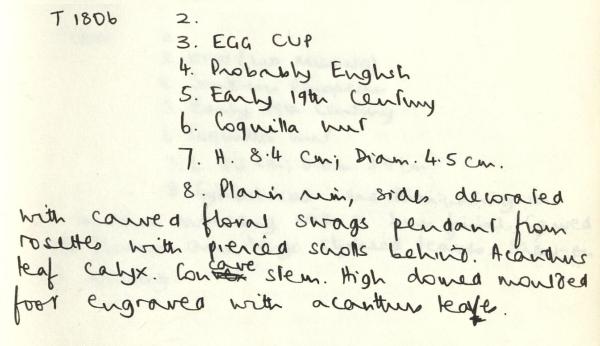 T 180b 2.
3. EGG CUP
4. Probably English
5. Early 19th Century
6. Coquilla nut
7. H. 8.4 cm; Diam. 4.5 cm.
8. Plain rim, sides decorated
with carved floral swags pendant from
rosettes with pierced scrolls behind. Acanthus
leaf calyx. Concave stem. High domed moulded
foot engraved with acanthus leafe.